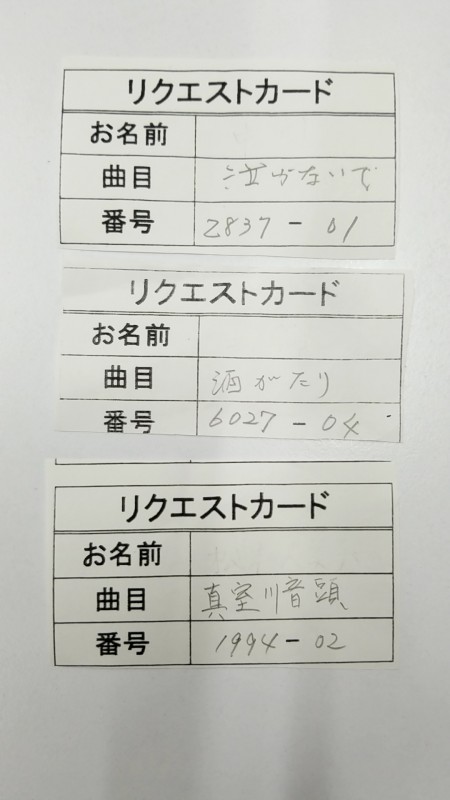 リクエストカード
お名前
曲目 泣かないで
番号 2837-01
リクエストカード
お名前
曲目 酒がたり
番号 6027-04
リクエストカード
お名前
曲目 真室川音頭
番号 1994-02